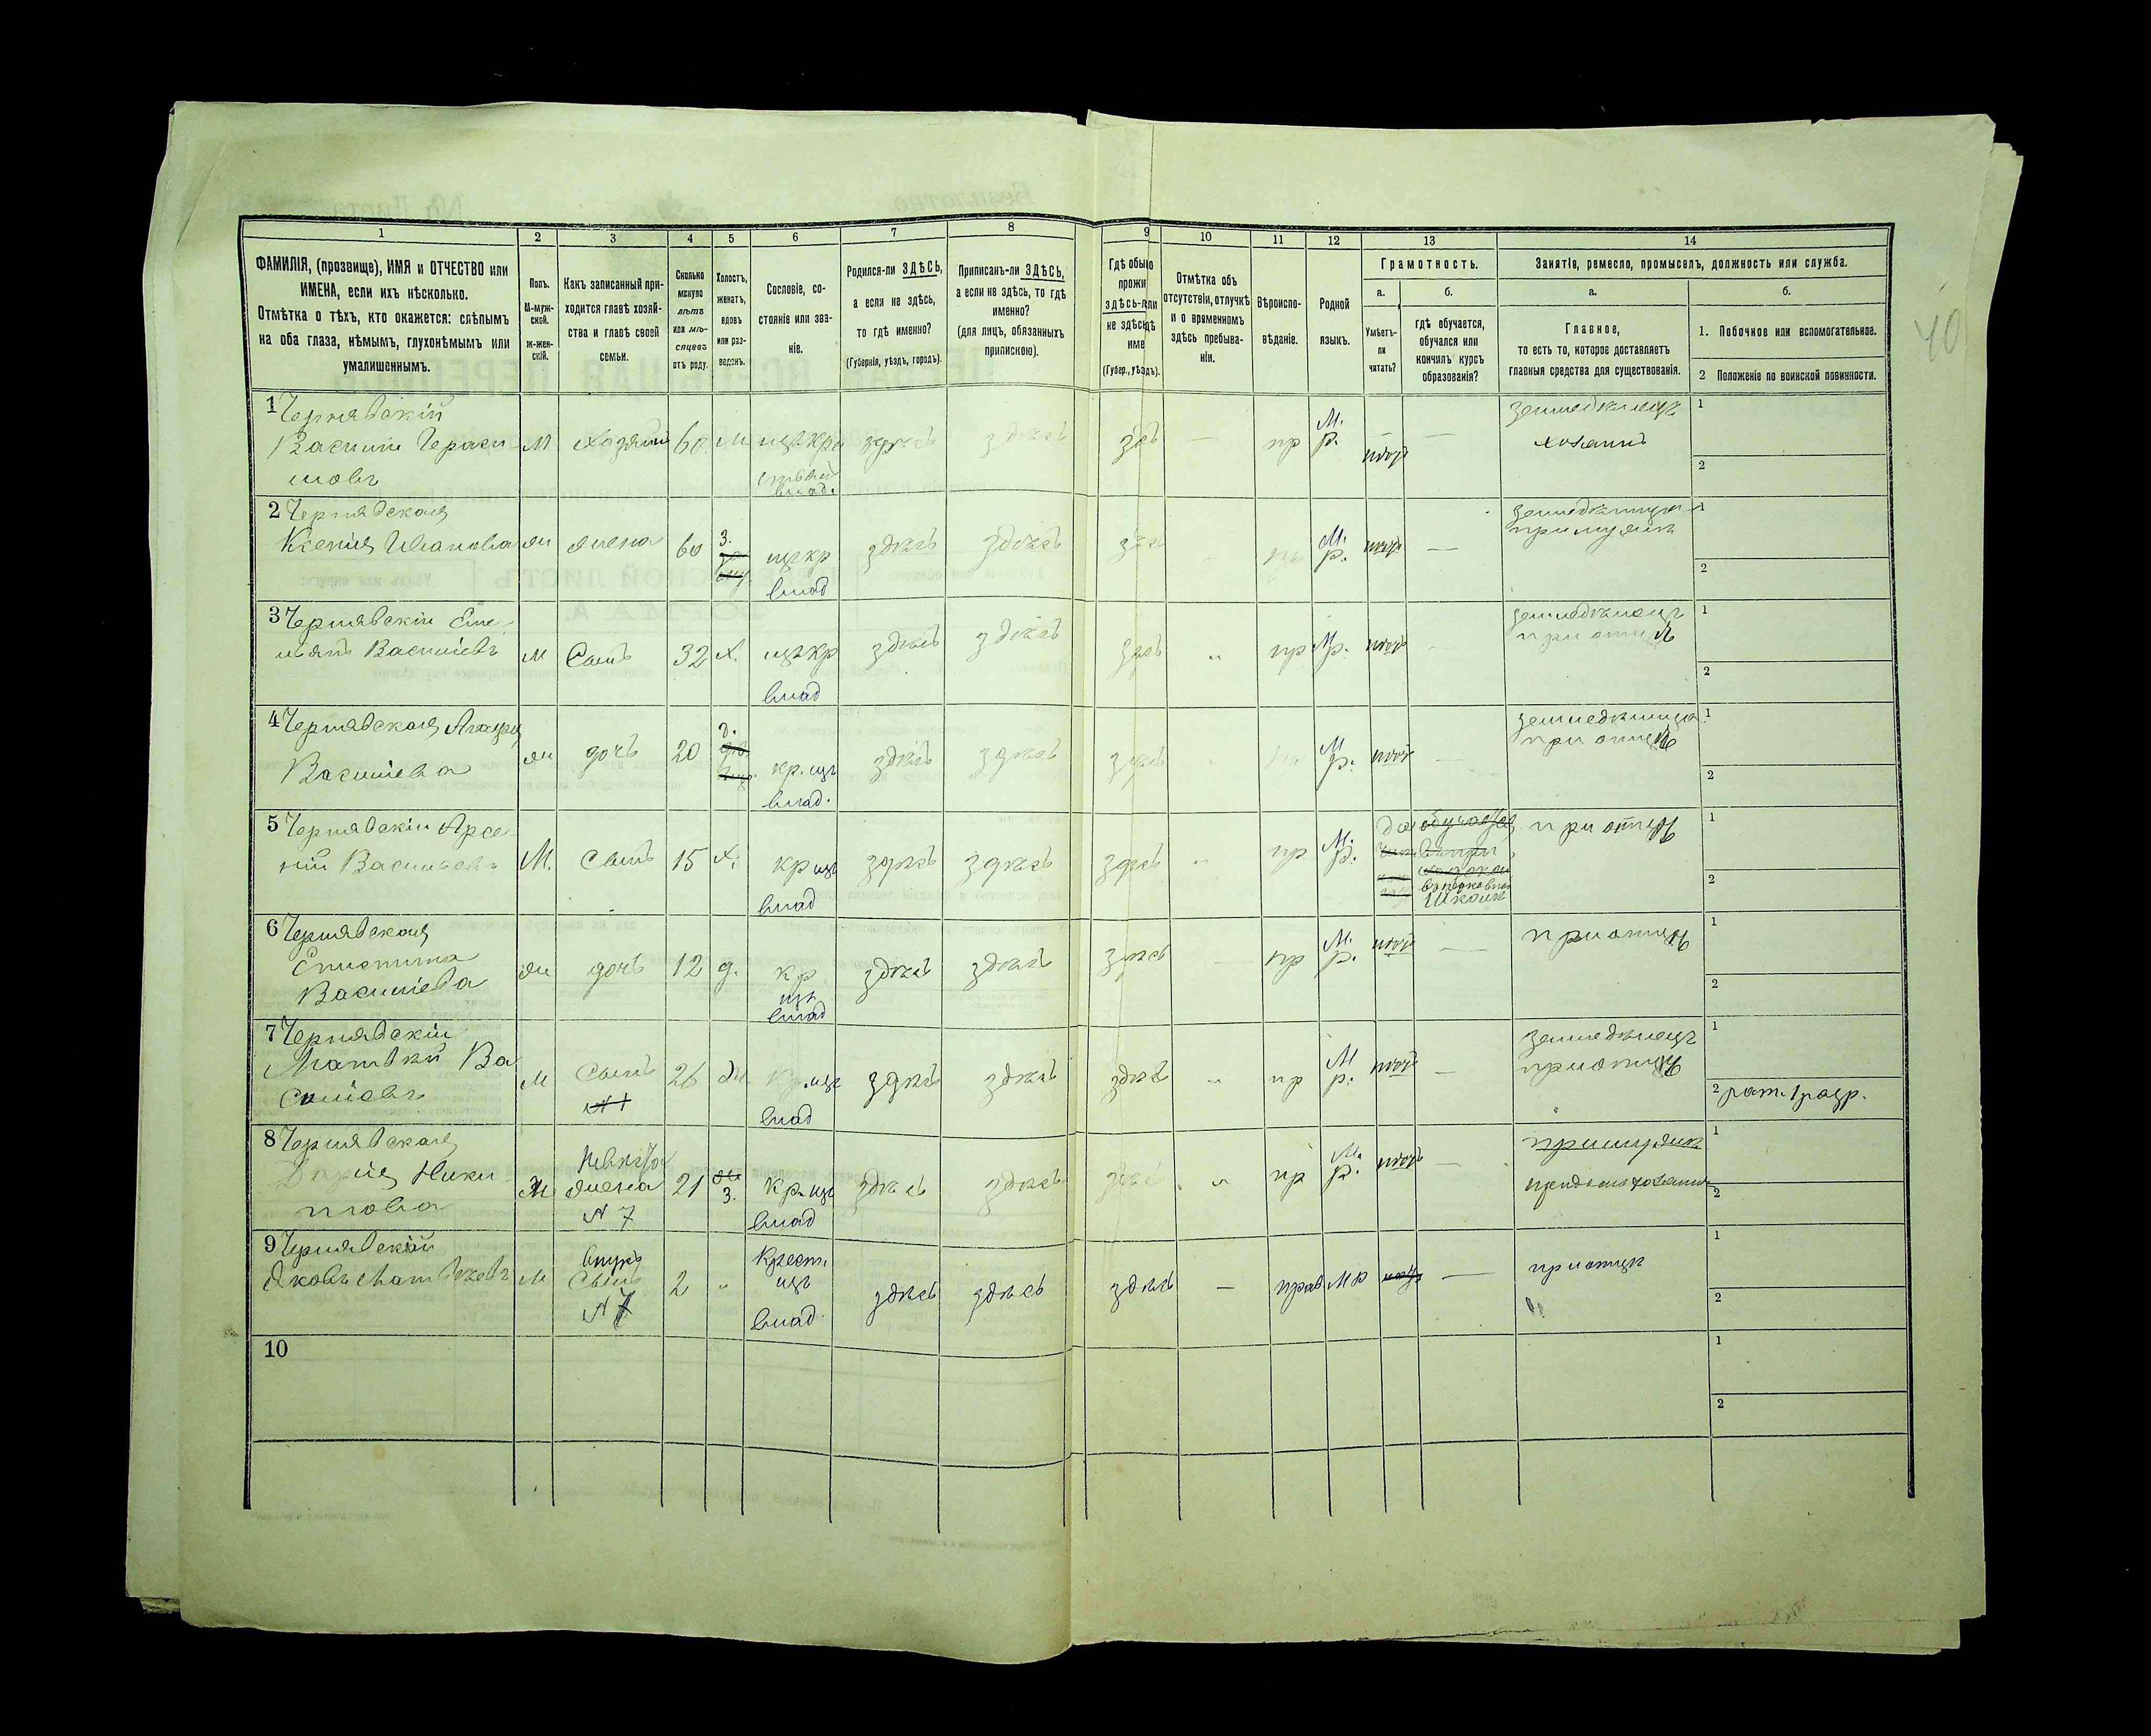 40
1 2 3 4 5 6 7 8 9 10 11 12 13 14
ФАМИЛІЯ, (прозвище), ИМЯ и ОТЧЕСТВО или
ИМЕНА, если ихъ нѣсколько.
Отмѣтка о тѣхъ, кто окажется: слѣпымъ
на оба глаза, нѣмымъ, глухонѣмымъ или
умалишеннымъ.
Полъ.
М-муж-
ской.
ж-жен-
скій.
Какъ записанный при-
ходится главѣ хозяй-
ства и главѣ своей
семьи.
Сколько
минуло
лѣтъ
или мѣ-
сяцевъ
отъ роду.
Холостъ,
женатъ,
вдовъ
или раз-
веденъ.
Сословіе, со-
стояніе или зва-
ніе.
Родился-ли ЗДѢСЬ,
а если не здѣсь,
то гдѣ именно?
(Губернія, уѣздъ, городъ).
Приписанъ-ли ЗДѢСЬ,
а если не здѣсь, то гдѣ
именно?
(для лицъ, обязанныхъ
припискою).
Гдѣ обы
прожи
ЗДѢСЬ-
не здѣсь
име
(Губер., уѣздъ).
Отмѣтка объ
отсутствіи, отлучкѣ
и о временномъ
здѣсь пребыва-
ніи.
Вѣроиспо-
вѣданіе.
Родной
языкъ.
Грамотность.
а. б.
Умѣетъ-
ли
читать?
гдѣ обучается,
обучался или
кончилъ курсъ
образованія?
Занятіе, ремесло, промыселъ, должность или служба.
а. б.
Главное,
то есть то, которое доставляетъ
главныя средства для существованія.
1. Побочное или вспомогательное.
2 Положеніе по воинской повинности.
1 Чернявскій
Василій Гераси
мовъ
М хозяинъ 60 здѣсь здѣсь — пр М.
р. —
земледѣлецъ
хозяинъ
1
2
2 Чернявская
Ксенія Иванова
ж жена 60 3. кр
влад
здѣсь здѣсь М.
р. —
земледѣлица
при мужѣ
1
2
3 Чернявскій Еме
льянъ Васильевъ
м Сынъ 32 х. кр
влад
здѣсь здѣсь " пр М р.
земледѣлецъ
при отцѣ
1
2
4 Чернявская
Васильева
ж дочь 20 д. кр.
влад.
здѣсь здѣсь М
р.
земледѣлица
при отцѣ
1
2
5 Чернявскій Арсе
ній Васильевъ
М. Сынъ 15 х. кр
влад
здѣсь здѣсь " пр М.
р.
да обучается
церковно
Школѣ
при отцѣ
1
2
6 Чернявская
Васильева
ж дочь 12 д. кр
влад
здѣсь здѣсь здѣсь — пр М.
р. —
при отцѣ
1
2
7 Чернявскій
Матвѣй Ва
сильевъ
м Сынъ 26 ж
№ 1
влад
здѣсь здѣсь здѣсь " пр М
р. —
земледѣлецъ
при отцѣ
1
2 рат. 1 разр.
8 Чернявская
Дарія Ники
това
Невѣстка
жена
№ 7
21 3. кр.
влад
здѣсь здѣсь " пр М.
р. —
при мужѣ
1
2
9 Чернявскій
Яковъ Матвѣевъ
м внукъ
Сынъ
№ 7
2 " Крест.
влад.
здѣсь здѣсь здѣсь — прав М р —
при отцѣ
1
2
10
1
2